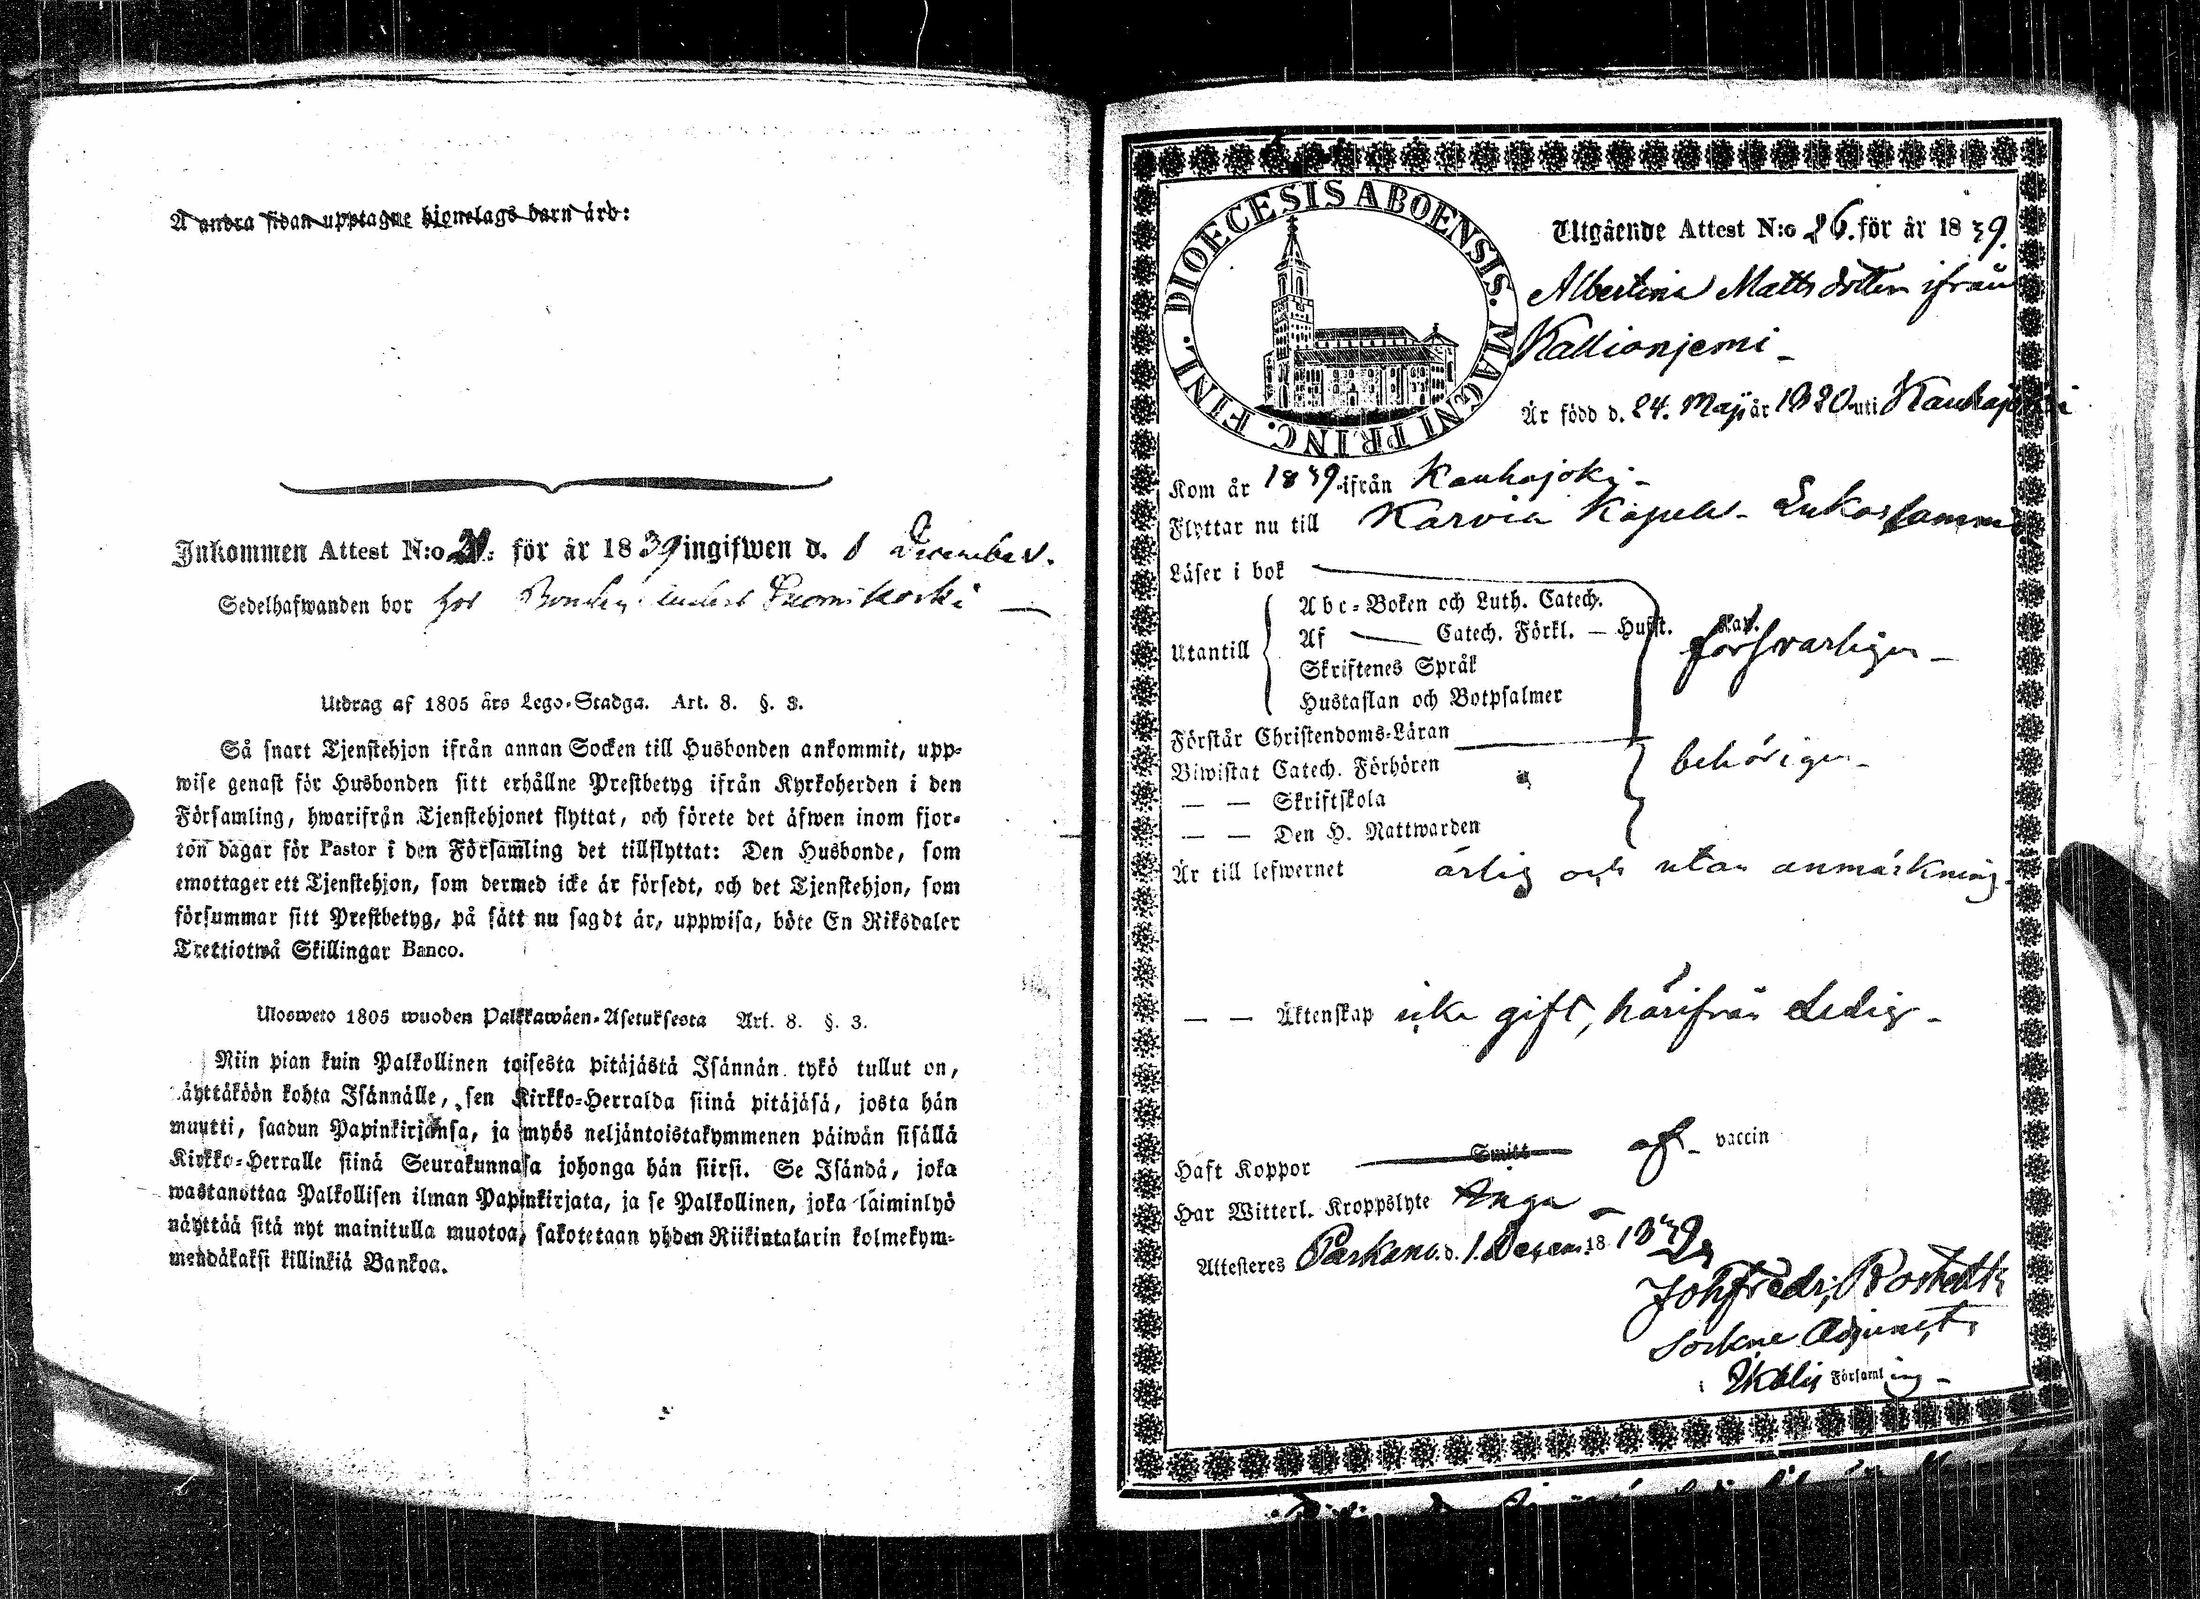 Å andra sidan upptagne hjonelags barn äro:
Inkommen Attest N:o 21. för år 1839 ingifwen d. 1 December.
Sedelhafwanden bor hos Bonden
Utdrag af 1805 års Lego-Stadga. Art. 8. §. 3.
Så snart Tjenstehjon ifrån annan Socken till Husbonden ankommit, upp-
wise genast för Husbonden sitt erhållne Prestbetyg ifrån Kyrkoherden i den
Församling, hwarifrån Tjenstehjonet flyttat, och förete det äfwen inom fjor-
ton dagar för Pastor i den Församling det tillflyttat: Den Husbonde, som
emottager ett Tjenstehjon, som dermed icke är försedt, och det Tjenstehjon, som
försummar sitt Prestbetyg, på sätt nu sagdt är, uppwisa, böte En Riksdaler
Trettiotwå Skillingar Banco.
Ulosweto 1805 wuoden Palkkawäen-Asetuksesta Art. 8. §. 3.
Niin pian kuin Palkollinen toisesta pitäjästä Isännän tykö tullut on,
näyttäköön kohta Isännälle, sen Kirkko-Herralda siinä pitäjäsä, josta hän
muutti, saadun Papinkirjansa, ja myös neljäntoistakymmenen päiwän sisällä
Kirkko-Herralle siinä Seurakunnasa johonga hän siirsi. Se Isändä, joka
wastanottaa Palkollisen ilman Papinkirjata, ja se Palkollinen, joka läiminlyö
näyttää sitä nyt mainitulla muotoa, sakotetaan yhden Riikintalarin kolmekym-
mendäkaksi killinkiä Bankoa.
DIOECESIS ABOENSIS. MAGNI PRINC. FINL.
Utgående Attest N:o 26. för år 1839.
Albertina Mattsdotter ifrån
Kallionjemi
Är född d. 24. Maji år 1820 uti Kauhajoki
Kom år 1839 ifrån Kauhajoki
Flyttar nu till Karvia Kapell
Läser i bok
Utantill
Abc-Boken och Luth. Catech.
Af Catech. Förkl. — Husst. Kat.
Skriftenes Språk
Hustaflan och Botpsalmer
försvarligen
Förstår Christendoms-Läran
Biwistat Catech. Förhören
— — Skriftskola
— — Den H. Nattwarden
behörigen
Är till lefwernet ärlig och utan anmärkning
— — Äktenskap icke gift, härifrån Ledig
Haft Koppor Smitt af vaccin
Har Witterl. Kroppslyte Inga
Attesteres Parkano d. 1. Decem. 18 1839
Joh Fredr.
Sockne Adjunct
i Ikalis Församling